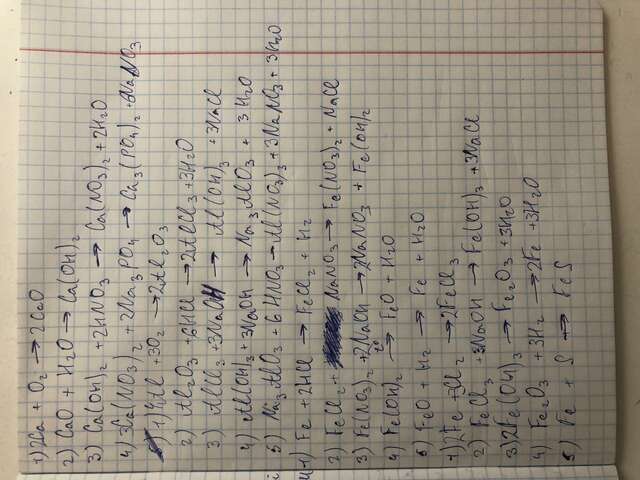 1) 2Ca + O2 → 2CaO
2) CaO + H2O → Ca(OH)2
3) Ca(OH)2 + 2HNO3 → Ca(NO3)2 + 2H2O
4) 3Ca(NO3)2 + 2Na3PO4 → Ca3(PO4)2 + 6NaNO3
1) 4Al + 3O2 → 2Al2O3
2) Al2O3 + 6HCl → 2AlCl3 + 3H2O
3) AlCl3 + 3NaOH → Al(OH)3 + 3NaCl
4) Al(OH)3 + 3NaOH → Na3AlO3 + 3H2O
5) Na3AlO3 + 6HNO3 → Al(NO3)3 + 3NaNO3 + 3H2O
1) Fe + 2HCl → FeCl2 + H2
2) FeCl2 + NaNO3 → Fe(NO3)2 + NaCl
3) Fe(NO3)2 + 2NaOH → 2NaNO3 + Fe(OH)2
4) Fe(OH)2 → FeO + H2O
5) FeO + H2 → Fe + H2O
1) 2Fe + 3Cl2 → 2FeCl3
2) FeCl3 + 3NaOH → Fe(OH)3 + 3NaCl
3) 2Fe(OH)3 → Fe2O3 + 3H2O
4) Fe2O3 + 3H2 → 2Fe + 3H2O
5) Fe + S → FeS